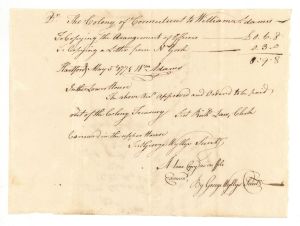 Dr The Colony of Connecticut to William Adams
To Copying the Arrangement of Officers £0.4.8
To Copying a Letter from N York 0.3.0
0.7.8
Hartford May 5th 1775 Wm Adams
In the Lower House
The above Acct Approved and Ordered to be paid
out of the Colony Treasury Test Richd Law, Clerk
Concurred in the upper House
Test George Wyllys Secrety
A true Copy on file
Examd
By George Wyllys Secrety